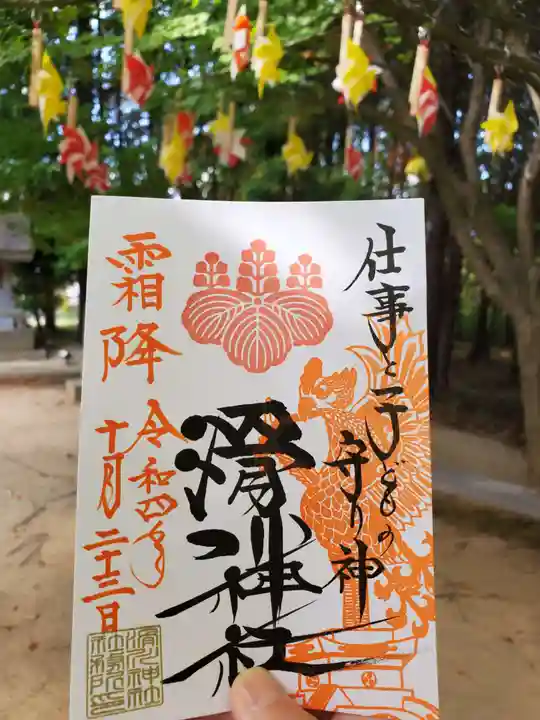 仕事と子どもの
守り神
滑川神社
霜降
令和四年
十月二十三日
滑川神社
社務所印